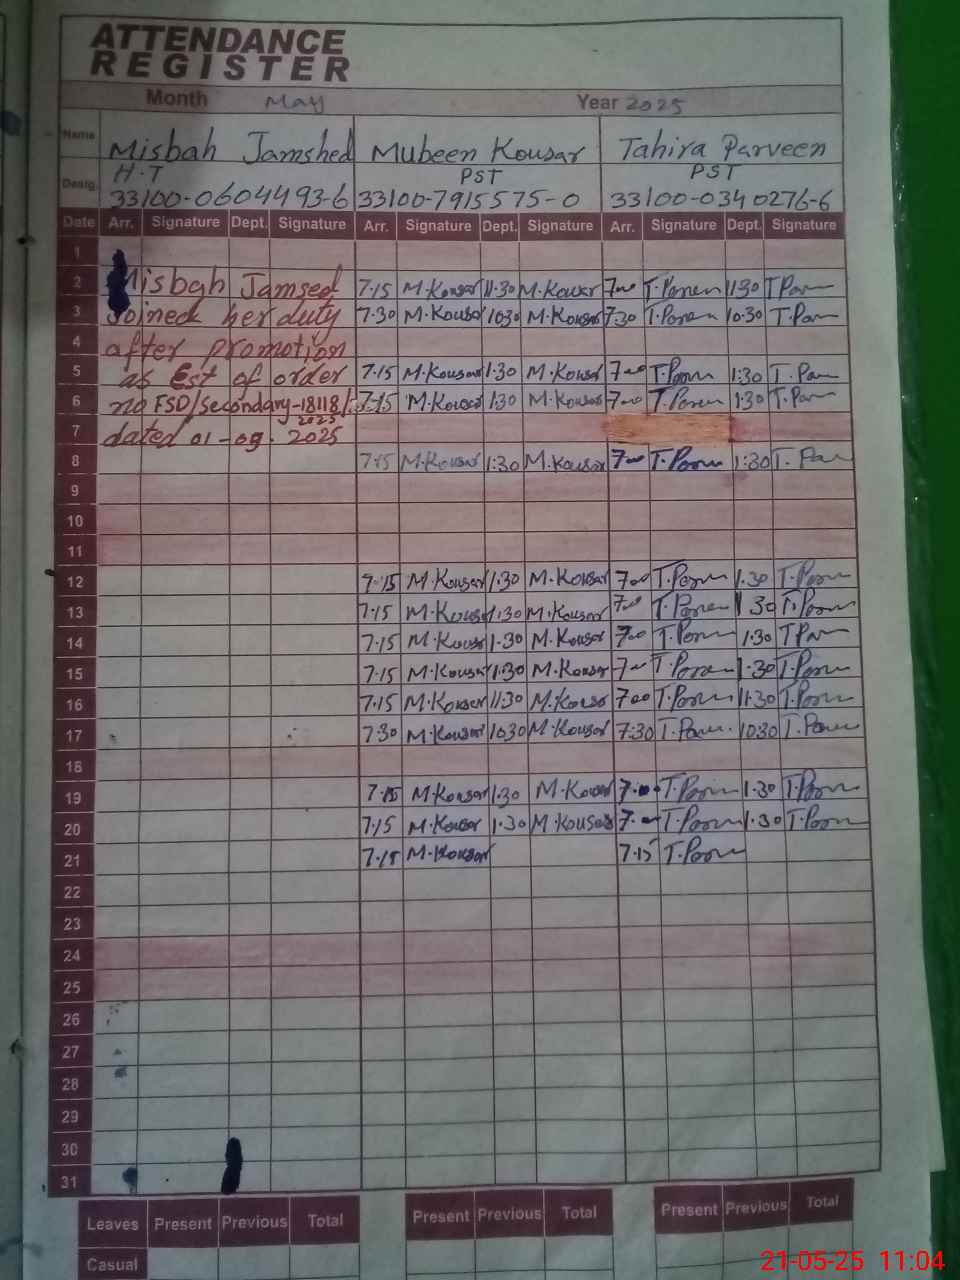 ATTENDANCE
REGISTER
Month May Year 2025
Name Misbah Jamshed Mubeen Kousar Tahira Parveen
Desig. H.T PST PST
33100-0604493-6 33100-7915575-0 33100-0340276-6
Date Arr. Signature Dept. Signature Arr. Signature Dept. Signature Arr. Signature Dept. Signature
1
2 Misbah Jamsed 7.15 M.Kousar 11:30 M.Kousar 7=00 11:30
3 Joined her duty 7.30 M.Kousar 1030 M.Kousar 7:30 10.30
4 after promotion
5 as Est of order 7.15 M.Kousar 1:30 M.Kousar 7=00 1:30
6 no FSD/secondary-18118/ 7.15 M.Kousar 1:30 M.Kousar 7=00 1:30
2025
7 dated 01-09.2025
8 7.15 M.Kousar 1:30 M.Kousar 7=00 1:30
9
10
11
12 7.15 M.Kousar 1.30 M.Kousar 7=00 1.30
13 7.15 M.Kousar 1.30 M.Kousar 7=00 1 30
14 7.15 M.Kousar 1.30 M.Kousar 700 1:30
15 7.15 M.Kousar 1:30 M.Kousar 7=00 1.30
16 7.15 M.Kousar 11:30 M.Kousar 700 11:30
17 7.30 M.Kousar 1030 M.Kousar 7:30 10:30
18
19 7.15 M.Kousar 1:30 M.Kousar 1.30
20 7.15 M.Kousar 1.30 M.Kousar 1.30
21 7.15 M.Kousar 7.15
22
23
24
25
26
27
28
29
30
31
Leaves Present Previous Total Present Previous Total Present Previous Total
Casual
21-05-25 11:04